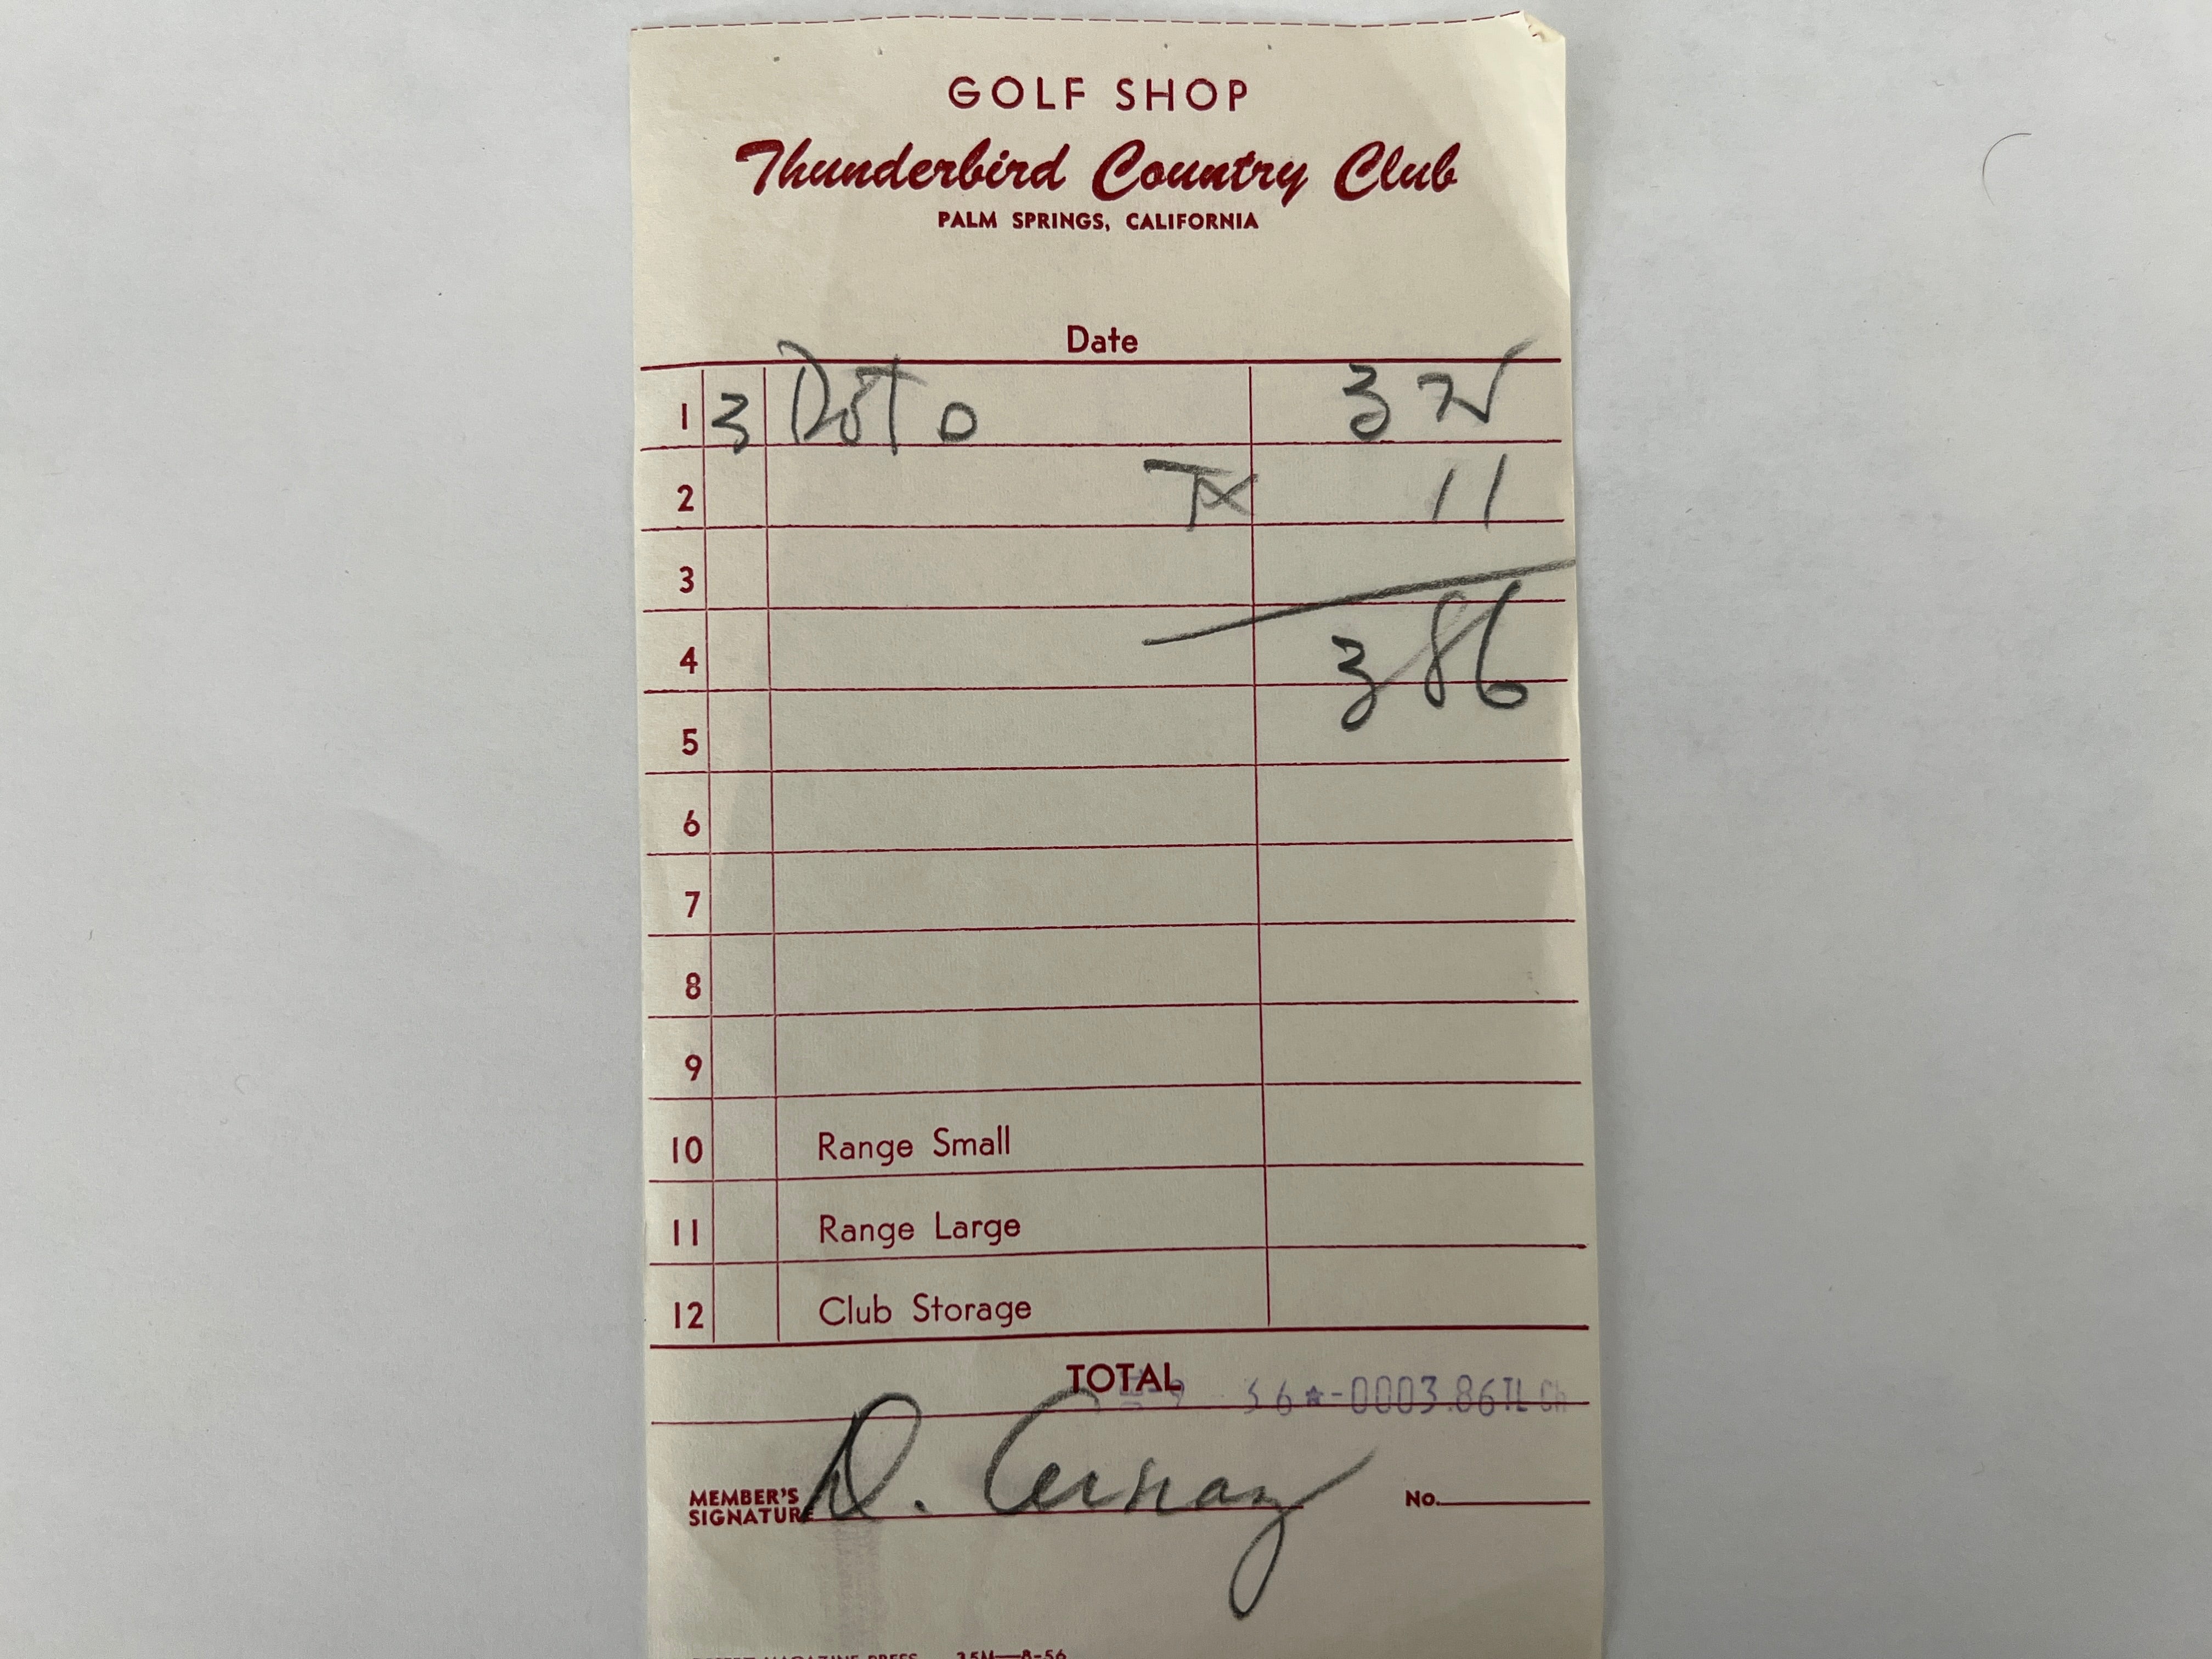 GOLF SHOP
Thunderbird Country Club
PALM SPRINGS, CALIFORNIA
Date
1 3 Dot 375
2 TX 11
3
4 3 86
5
6
7
8
9
10 Range Small
11 Range Large
12 Club Storage
TOTAL
36★-0003.86TL Ch
MEMBER'S
SIGNATURE D. No.
MAGAZINE PRESS 35M—8-56